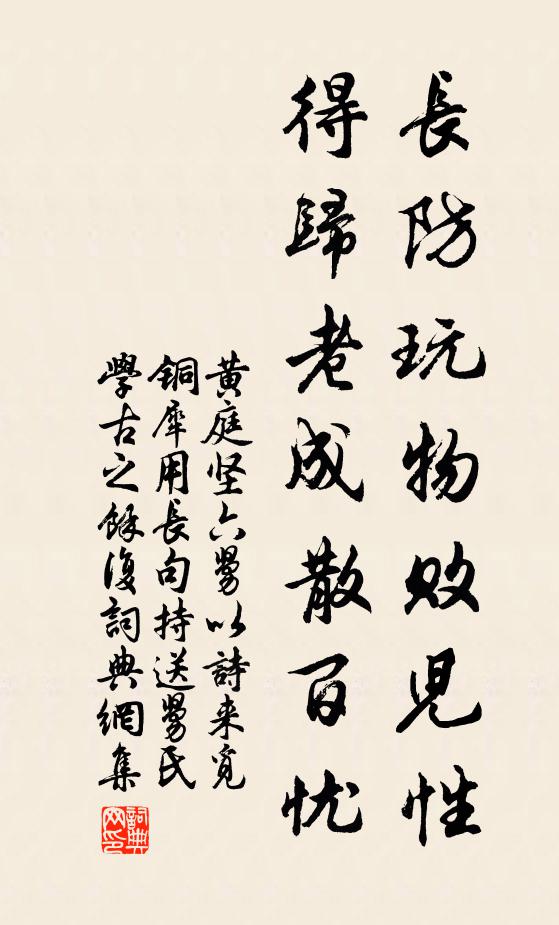 長防玩物败児性
得歸老成散百忧
黄庭坚六舅以詩来覓
銅犀用長句持送舅氏
學古之餘復詞典網集
詞典网印